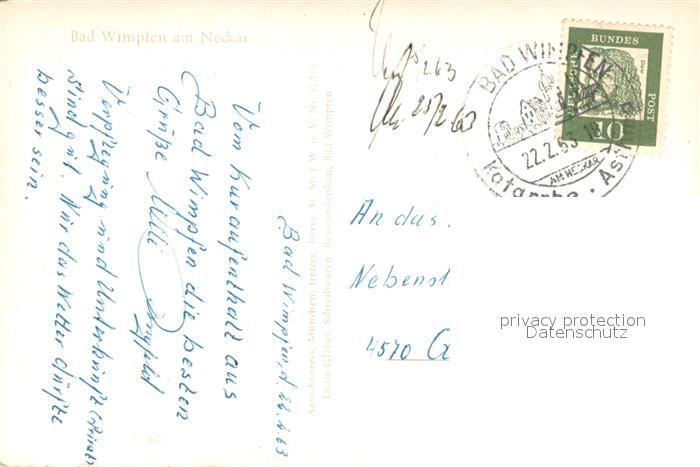 Bad Wimpfen am Neckar
Bad Wimpfen, d. 22.2.63
Vom Kuraufenthalt aus
Bad Wimpfen die besten
Grüße Milli
Verpflegung und Unterkünfte (Privat)
sind gut. Nur das Wetter dürfte
besser sein.
Aero-Express, München, Freigeg. Bayer. St. M. f. W. u. V. Nr. G
Schreibwaren, Reiseandenken, Bad Wimpfen
2.63
25/2.63
BAD WIMPFEN
22.2.63-18
AM NECKAR
Katarrhe · Asthma
BUNDES
POST
10
An das
Nebenst
4570 Q
privacy protection
Datenschutz